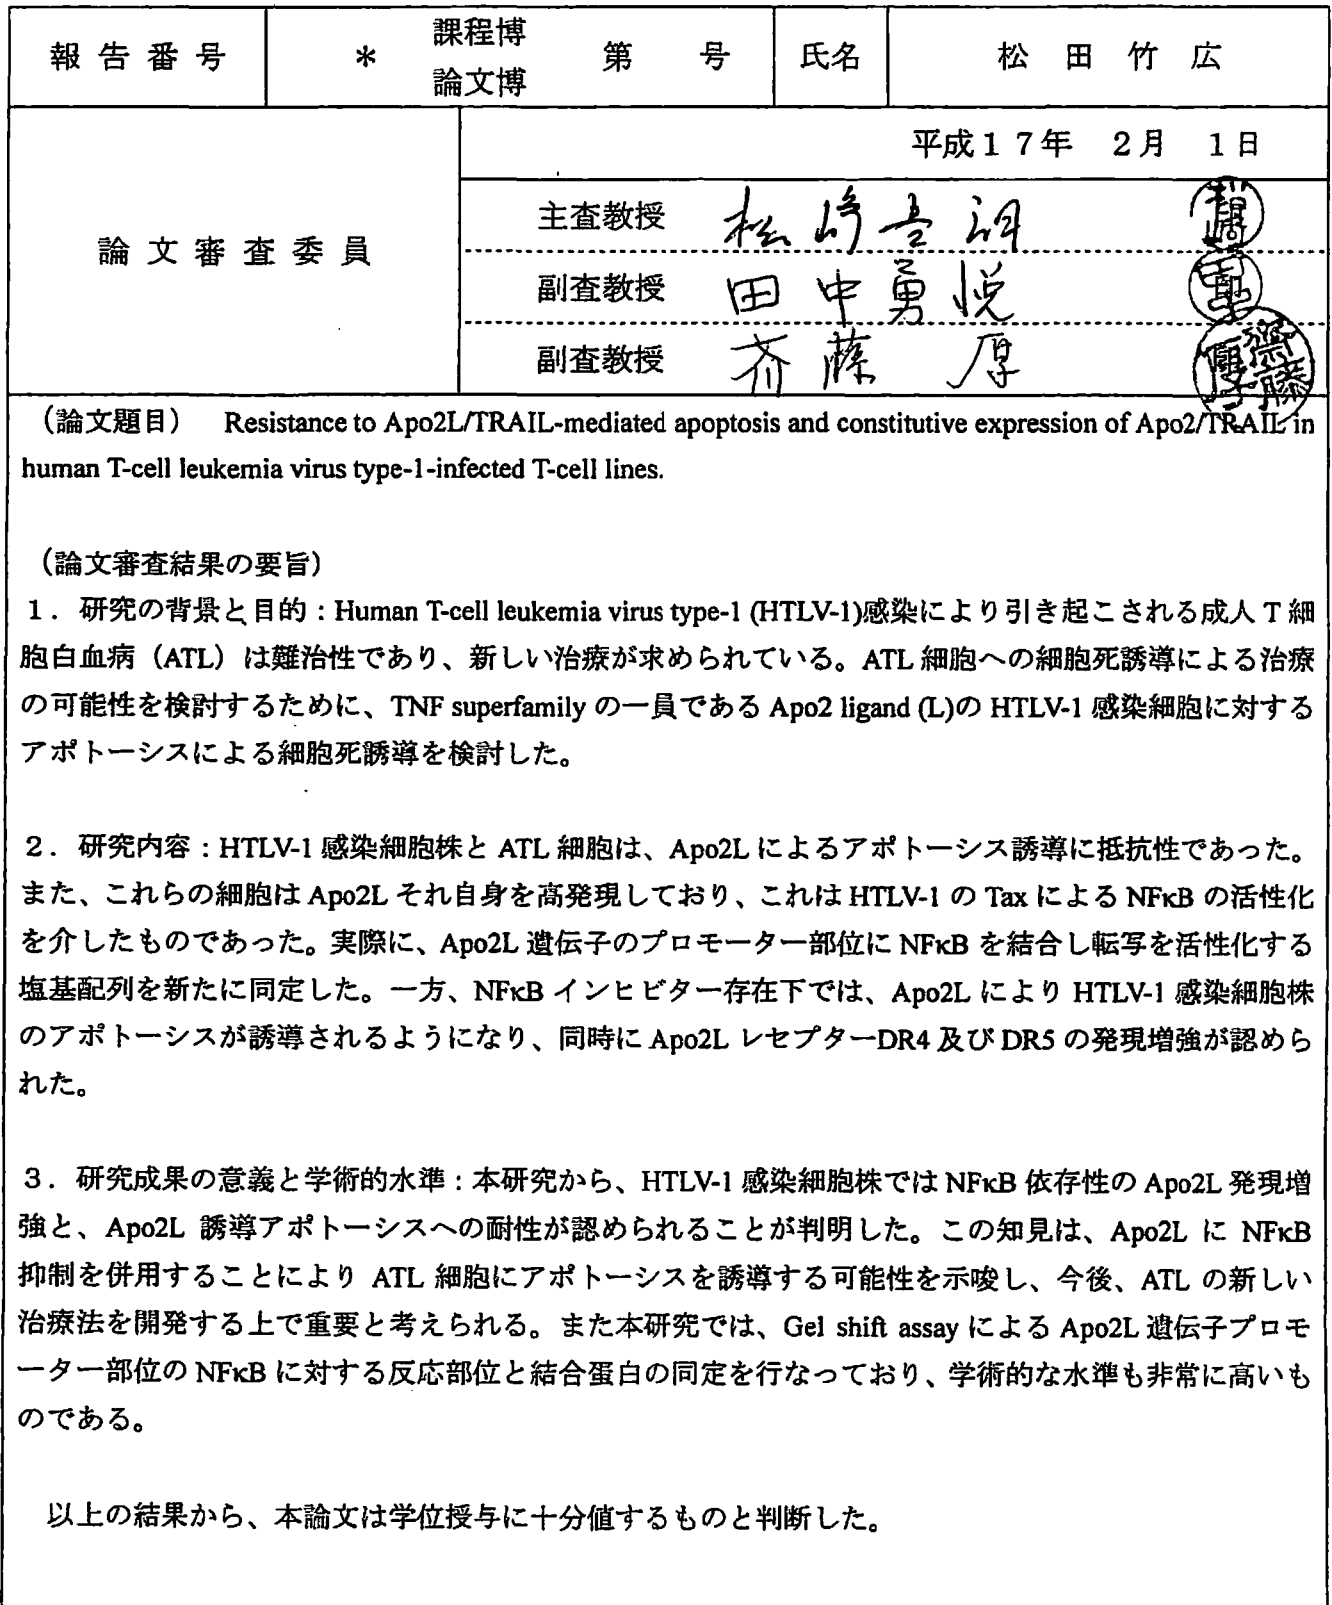 報告番号 * 課程博 論文博 第 号 氏名 松田竹広
平成17年 2月 1日
論文審査委員
主査教授 松崎吾朗
副査教授 田中勇悦
副査教授 斉藤 厚
(論文題目) Resistance to Apo2L/TRAIL-mediated apoptosis and constitutive expression of Apo2/TRAIL in
human T-cell leukemia virus type-1-infected T-cell lines.
(論文審査結果の要旨)
1.研究の背景と目的:Human T-cell leukemia virus type-1 (HTLV-1)感染により引き起こされる成人T細
胞白血病(ATL)は難治性であり、新しい治療が求められている。ATL細胞への細胞死誘導による治療
の可能性を検討するために、TNF superfamilyの一員であるApo2 ligand (L)のHTLV-1感染細胞に対する
アポトーシスによる細胞死誘導を検討した。
2.研究内容:HTLV-1感染細胞株とATL細胞は、Apo2Lによるアポトーシス誘導に抵抗性であった。
また、これらの細胞はApo2Lそれ自身を高発現しており、これはHTLV-1のTaxによるNFκBの活性化
を介したものであった。実際に、Apo2L遺伝子のプロモーター部位にNFκBを結合し転写を活性化する
塩基配列を新たに同定した。一方、NFκBインヒビター存在下では、Apo2LによりHTLV-1感染細胞株
のアポトーシスが誘導されるようになり、同時にApo2LレセプターDR4及びDR5の発現増強が認めら
れた。
3.研究成果の意義と学術的水準:本研究から、HTLV-1感染細胞株ではNFκB依存性のApo2L発現増
強と、Apo2L誘導アポトーシスへの耐性が認められることが判明した。この知見は、Apo2LにNFκB
抑制を併用することによりATL細胞にアポトーシスを誘導する可能性を示唆し、今後、ATLの新しい
治療法を開発する上で重要と考えられる。また本研究では、Gel shift assayによるApo2L遺伝子プロモ
ーター部位のNFκBに対する反応部位と結合蛋白の同定を行なっており、学術的な水準も非常に高いも
のである。
以上の結果から、本論文は学位授与に十分値するものと判断した。